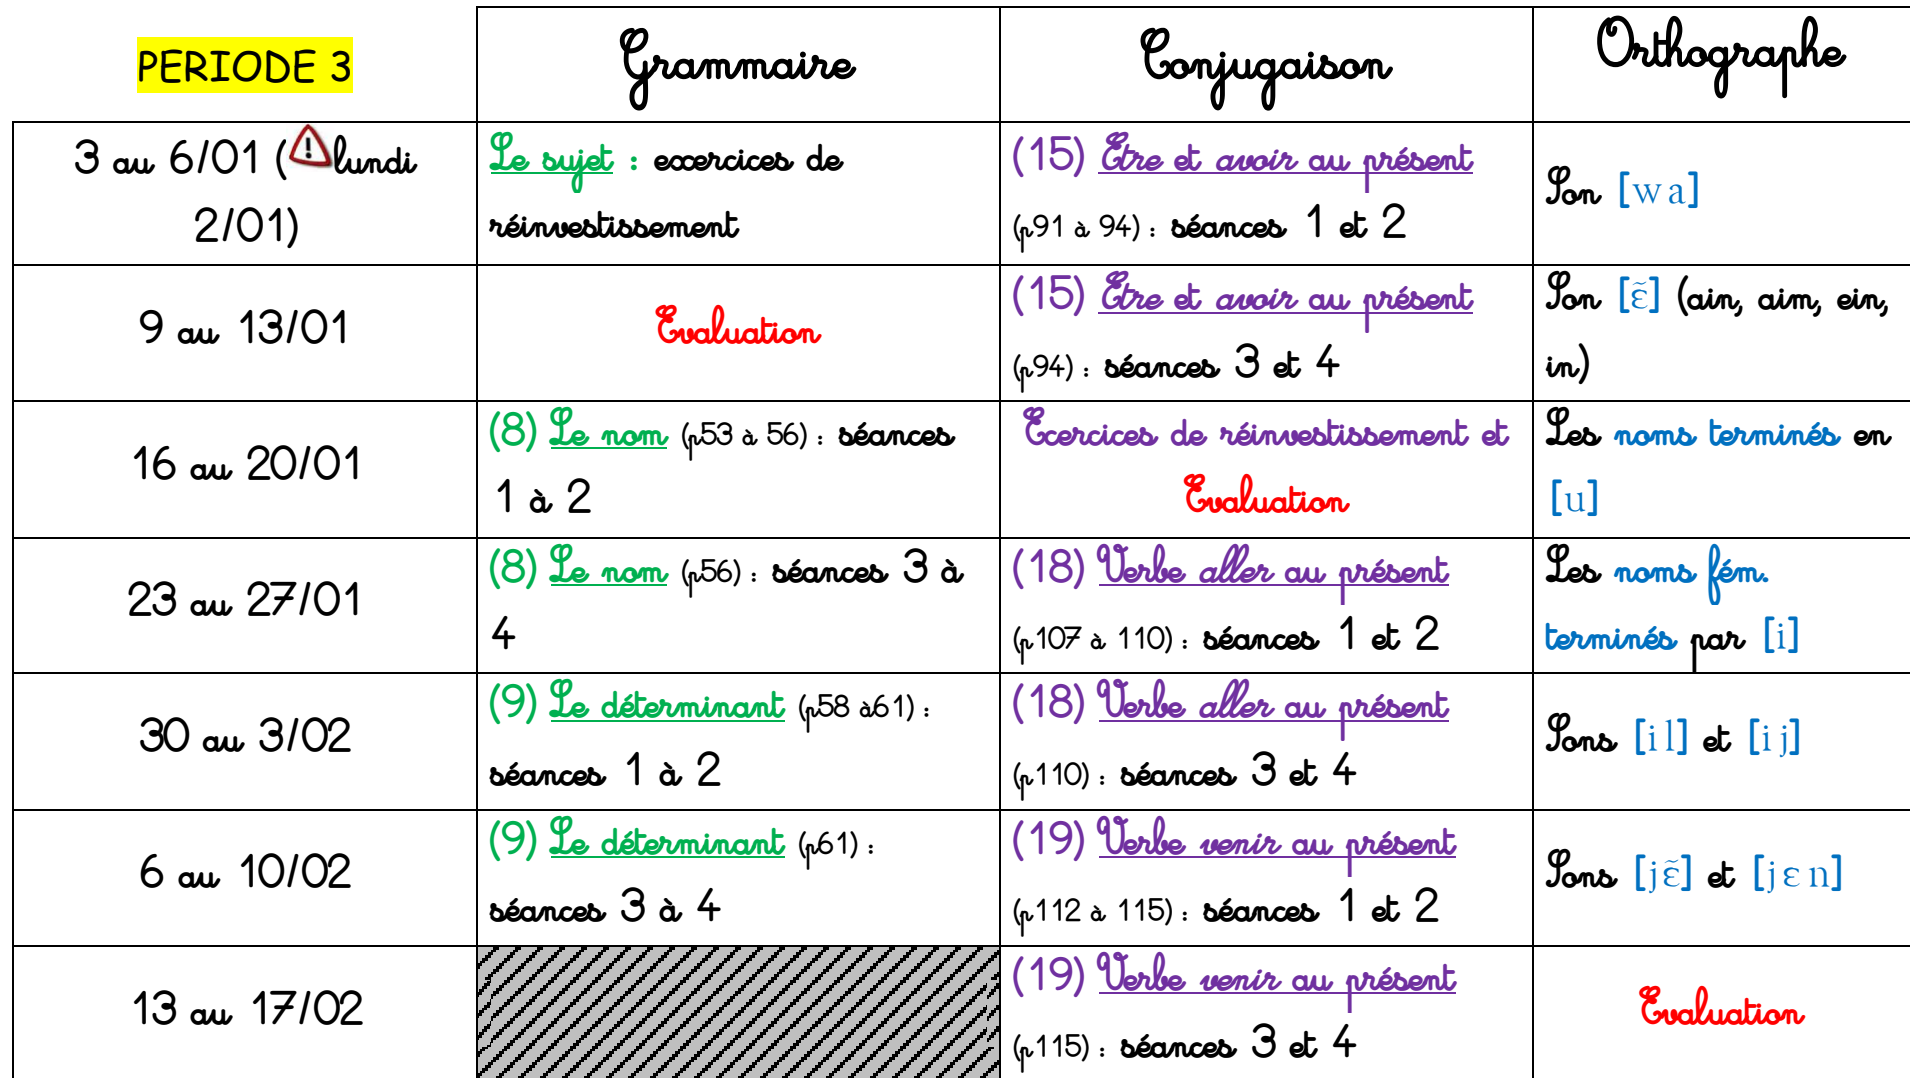 PERIODE 3
Grammaire
Conjugaison
Orthographe
3 au 6/01 (lundi
2/01)
Le sujet : exercices de
réinvestissement
(15) Etre et avoir au présent
(p91 à 94) : séances 1 et 2
Son [wa]
9 au 13/01
Evaluation
(15) Etre et avoir au présent
(p94) : séances 3 et 4
Son [ɛ̃] (ain, aim, ein,
in)
16 au 20/01
(8) Le nom (p53 à 56) : séances
1 à 2
Exercices de réinvestissement et
Evaluation
Les noms terminés en
[u]
23 au 27/01
(8) Le nom (p56) : séances 3 à
4
(18) Verbe aller au présent
(p107 à 110) : séances 1 et 2
Les noms fém.
terminés par [i]
30 au 3/02
(9) Le déterminant (p58 à61) :
séances 1 à 2
(18) Verbe aller au présent
(p110) : séances 3 et 4
Sons [il] et [ij]
6 au 10/02
(9) Le déterminant (p61) :
séances 3 à 4
(19) Verbe venir au présent
(p112 à 115) : séances 1 et 2
Sons [jɛ̃] et [jɛn]
13 au 17/02
(19) Verbe venir au présent
(p115) : séances 3 et 4
Evaluation